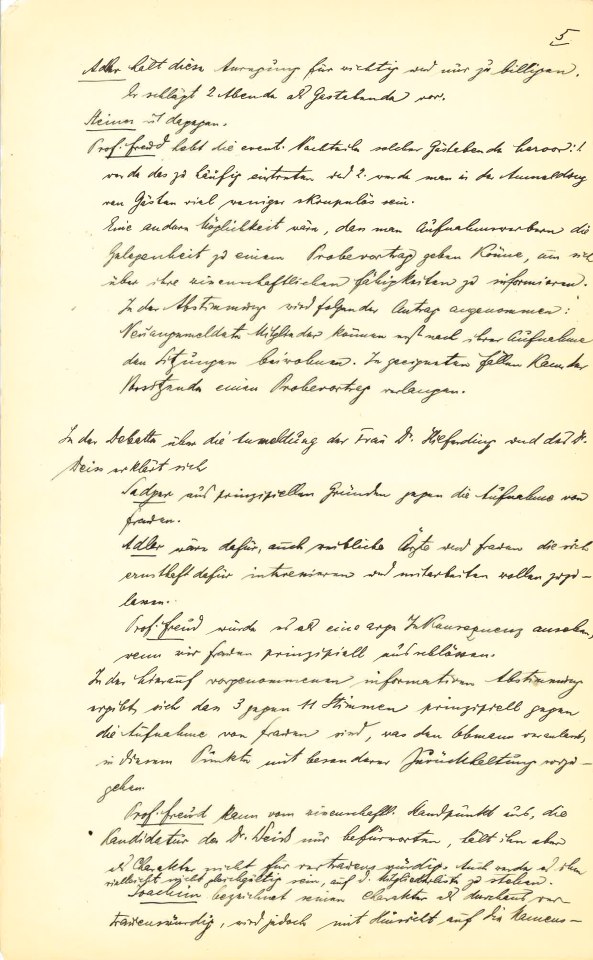 5
Adler hält diese Anregung für wichtig und nur zu billigen.
Er schlägt 2 Abende als Gastabende vor.
Steiner ist dagegen.
Prof. Freud hebt die event. Nachteile solcher Gästeabende hervor: 1.
werde das zu häufig eintreten und 2. werde man in der Anmeldung
von Gästen viel weniger skrupulös sein.
Eine andere Möglichkeit wäre, dass man Aufnahmswerbern die
Gelegenheit zu einem Probevortrag geben könne, um sich
über ihre wissenschaftlichen Fähigkeiten zu informieren.
In der Abstimmung wird folgender Antrag angenommen:
Neuangemeldete Mitglieder können erst nach ihrer Aufnahme
den Sitzungen beiwohnen. In geeigneten Fällen kann der
Vorsitzende einen Probevortrag verlangen.
In der Debatte über die Anmeldung der Frau Dr. Hilferding und des Dr.
Weiss erklärt sich
Sadger aus prinzipiellen Gründen gegen die Aufnahme von
Frauen.
Adler wäre dafür, auch weibliche Ärzte und Frauen die sich
ernsthaft dafür interessieren und mitarbeiten wollen zuzu-
lassen.
Prof. Freud würde es als eine arge Inkonsequenz ansehen,
wenn wir Frauen prinzipiell ausschlössen.
In der hierauf vorgenommenen informativen Abstimmung
ergibt sich dass 3 gegen 11 Stimmen prinzipiell gegen
die Aufnahme von Frauen sind, was den Obmann veranlasst,
in diesem Punkte mit besonderer Zurückhaltung vorzu-
gehen.
Prof. Freud kann vom wissenschaftl. Standpunkt aus, die
Kandidatur des Dr. Weiss nur befürworten, hält ihn aber
als Charakter nicht für vertrauenswürdig. Auch werde es ihm
vielleicht nicht gleichgültig sein, auf d. Mitgliederliste zu stehen.
Joachim bezeichnet seinen Charakter als durchaus ver-
trauenswürdig, wird jedoch mit Hinsicht auf die Namens-